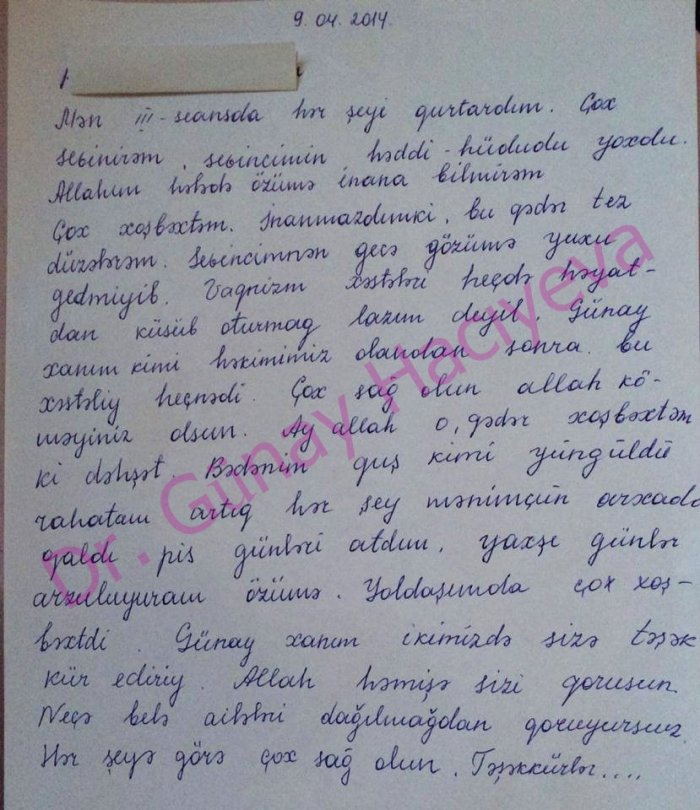 9.04.2014.
Mən III-seansda hər şeyi qurtardım. Çox
sevinirəm, sevincimin həddi-hüdudu yoxdu.
Allahım hələdə özümə inana bilmirəm
Çox xoşbəxtəm. İnanmazdımki, bu qədər tez
düzələrəm. Sevincimnən gecə gözümə yuxu
gedmiyib. Vaqnizm xəstələri heçdə həyat-
dan küsüb oturmag lazım deyil. Günay
xanım kimi həkimimiz olandan sonra bu
xəstəliy heçnədi. Çox sağ olun allah kö-
məyiniz olsun. Ay allah o, qədər xoşbəxtəm
ki dəhşət. Bədənim quş kimi yüngüldü
rahatam artıq hər şey mənimçün arxada
qaldı pis günləri atdım, yaxşı günlər
arzuluyuram özümə. Yoldaşımda çox xoş-
bəxtdi. Günay xanım ikimizdə sizə təşək
kür ediriy. Allah həmişə sizi qorusun.
Neçə belə ailələri dağılmağdan qoruyursuz.
Hər şeyə görə çox sağ olun. Təşəkkürlər....
Dr. Günay Hacıyeva